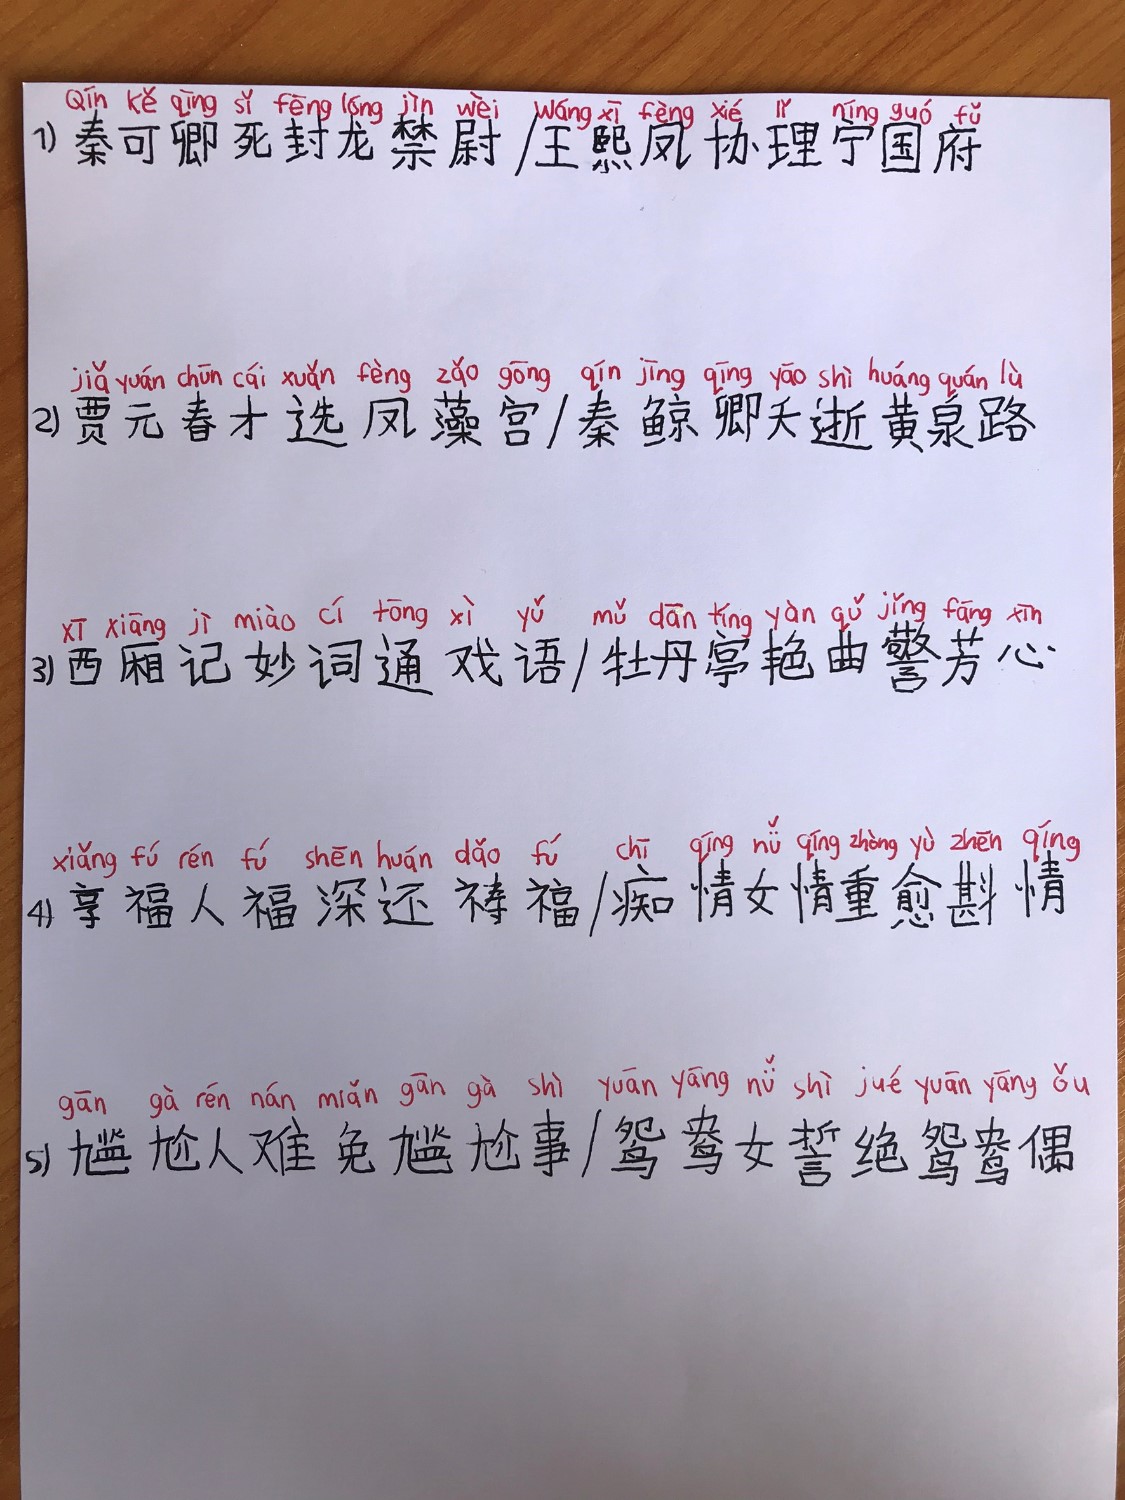 Qín kě qīng sǐ fēng lóng jìn wèi wáng xī fèng xié lǐ níng guó fǔ
1) 秦可卿死封龙禁尉/王熙凤协理宁国府
jiǎ yuán chūn cái xuǎn fèng zǎo gōng qín jīng qīng yāo shì huáng quán lù
2) 贾元春才选凤藻宫/秦鲸卿夭逝黄泉路
xī xiāng jì miào cí tōng xì yǔ mǔ dān tíng yàn qǔ jǐng fāng xīn
3) 西厢记妙词通戏语/牡丹亭艳曲警芳心
xiǎng fú rén fú shēn huán dǎo fú chī qíng nǚ qíng zhòng yù zhēn qíng
4) 享福人福深还祷福/痴情女情重愈斟情
gān gà rén nán miǎn gān gà shì yuān yāng nǚ shì jué yuān yāng ǒu
5) 尴尬人难免尴尬事/鸳鸯女誓绝鸳鸯偶